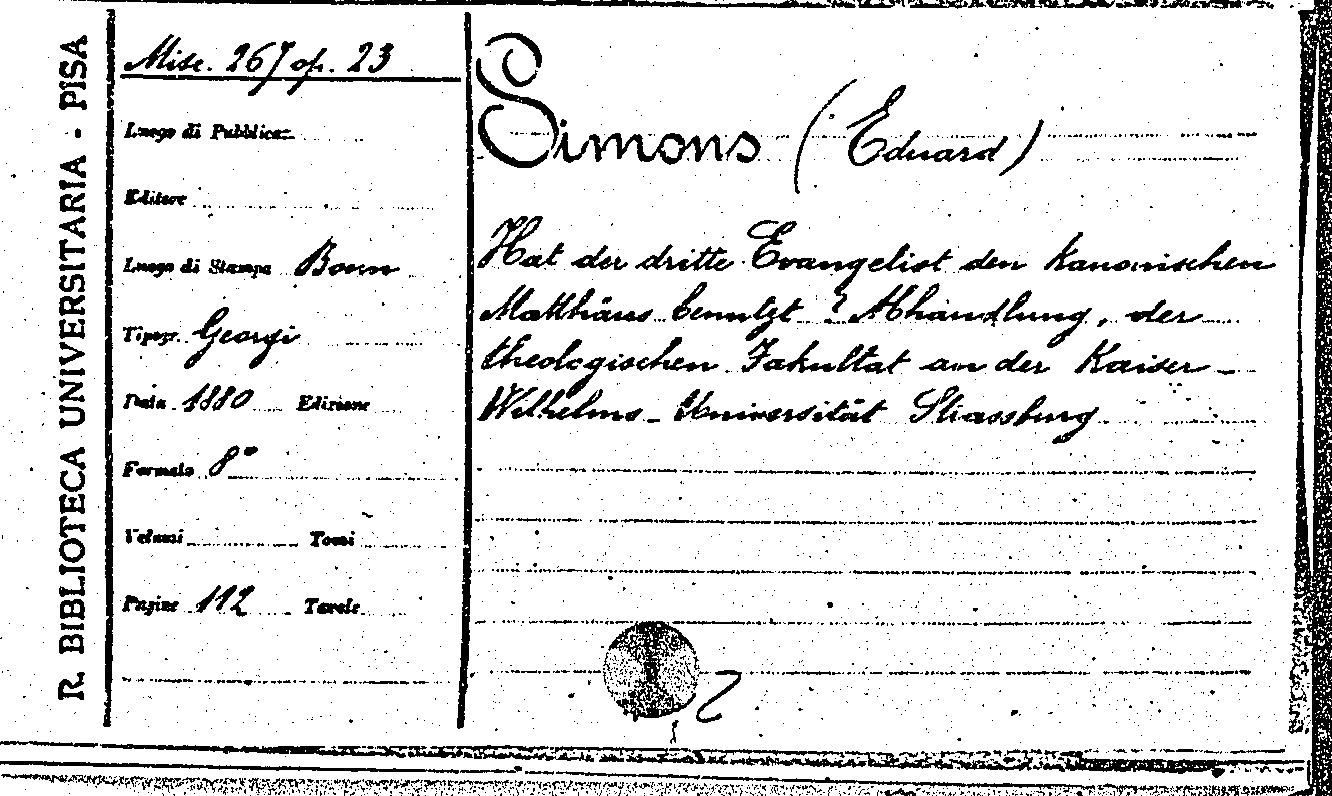 R. BIBLIOTECA UNIVERSITARIA - PISA
Misc. 267 op. 23
Luogo di Pubblicaz.
Editore
Luogo di Stampa Bonn
Tipogr. Georgi
Data 1880 Edizione
Formato 8°
Volumi Tomi
Pagine 112 Tavole
Simons (Eduard)
Hat der dritte Evangelist den kanonischen
Matthäus benutzt? Abhandlung, der
theologischen Fakultat an der Kaiser-
Wilhelms-Universität Strassburg
2